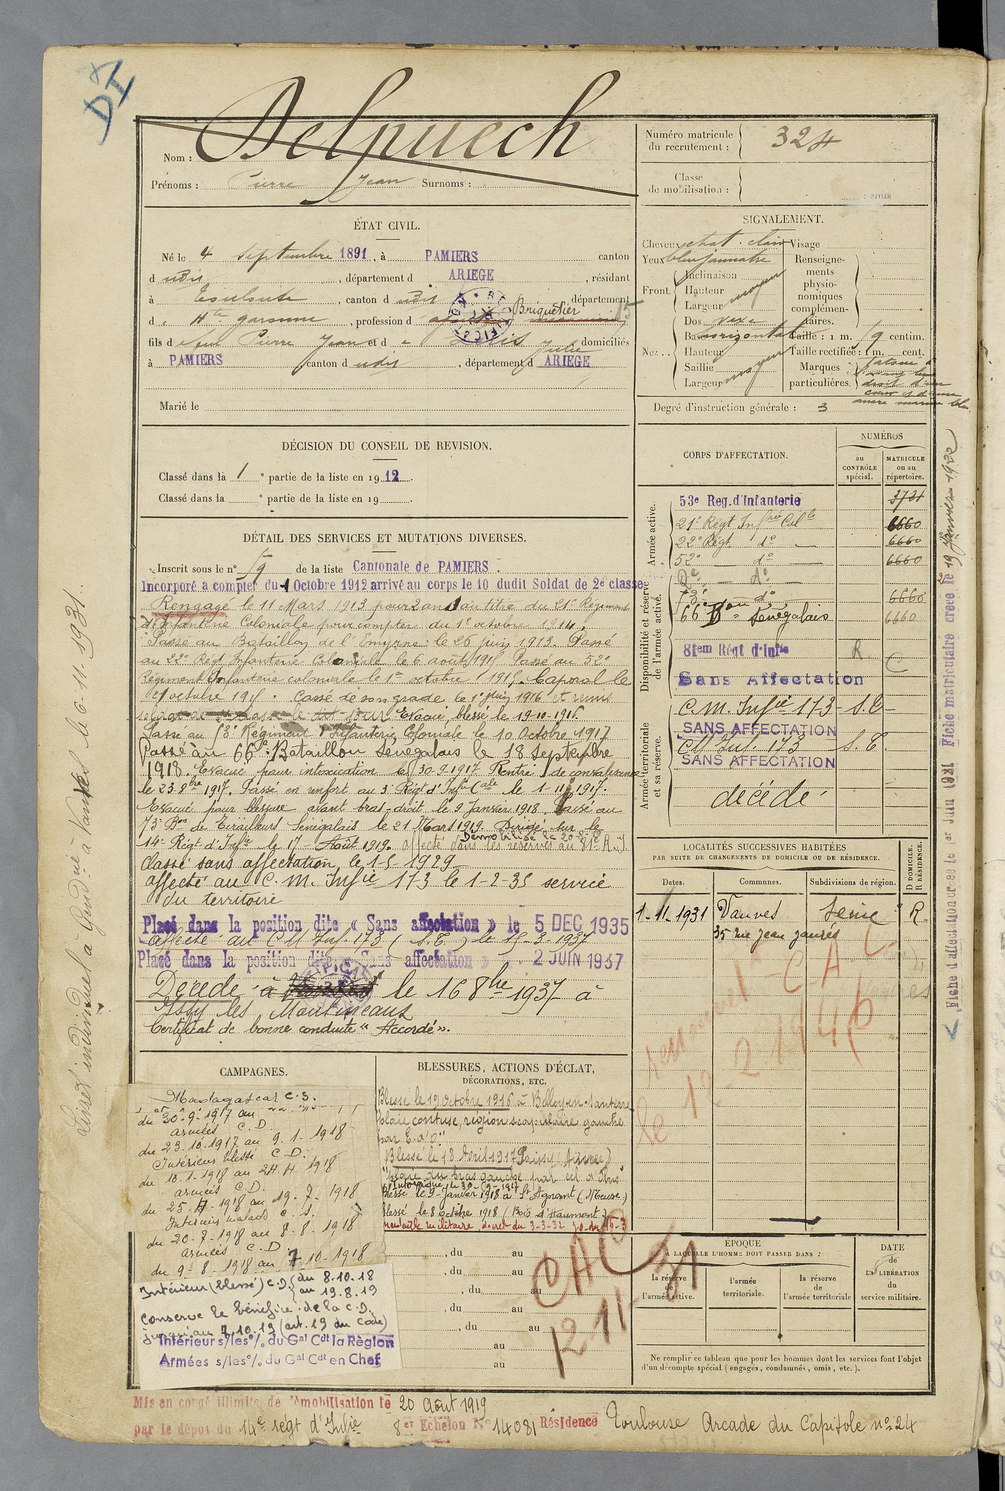 DI
Nom : Delpuech
Prénoms : Pierre Jean Surnoms :
Numéro matricule
du recrutement : 324
Classe
de mobilisation :
ÉTAT CIVIL.
Né le 4 septembre 1891, à PAMIERS canton
dudit, département d ARIEGE, résidant
à Toulouse, canton dudit département
d Hte garonne, profession d Briquetier
fils de feu Pierre Jean et de Julie domiciliés
à PAMIERS canton dudit, département d ARIEGE
Marié le
SIGNALEMENT.
Cheveux chat. clair Visage
Yeux bleu jaunatre
Renseigne-
ments
physio-
nomiques
complémen-
taires.
Front.
Inclinaison
Hauteur moyen
Largeur
Nez..
Dos vexe
Base horizontale
Hauteur moyen
Saillie
Largeur
Taille : 1 m. centim.
Taille rectifiée : 1 m. cent.
Marques
particulières.
Degré d'instruction générale : 3
DÉCISION DU CONSEIL DE REVISION.
Classé dans la 1e partie de la liste en 1912
Classé dans la e partie de la liste en 19
DÉTAIL DES SERVICES ET MUTATIONS DIVERSES.
Inscrit sous le n° 59 de la liste Cantonale de PAMIERS
Incorporé a compter du 1 Octobre 1912 arrivé au corps le 10 dudit Soldat de 2e classe
Rengagé le 11 Mars 1913 pour 2 ans au titre du 21e Régiment
d'Infanterie Coloniale pour compter du 1er octobre 1914.
Passé au Bataillon de l'Emyrne le 26 juin 1913. Passé
au 22e Regt Infanterie Coloniale le 6 août 1915 Passé au 52e
Régiment Infanterie coloniale le 1er octobre 1915. Caporal le
octobre 1915. Cassé de son grade le 1er juin 1916 et remis
Evacué blessé le 19-10-1916
Passé au Régiment d'Infanterie Coloniale le 10 Octobre 1917
Passé au 66e Bataillon Senegalais le 18 Septembre
1918. Evacué pour intoxication le 30-9-1917. Rentré de convalescence
le 23 8bre 1917. Passé en renfort au 3e Régt d'Infie Cale le 1-11-1917.
Evacué pour blessure avant bras droit le 9 Janvier 1918. Passé au
73e Bon de Tirailleurs Sénégalais le 21 Mars 1919. Dirigé sur le
14e Régt d'Infie le 17 Août 1919. Démobilisé le 20-8-19
affecté dans les réserves au 81e R.I.
Classé sans affectation le 1-5-1929
affecté au C.M. Infie 173 le 1-2-35 service
du territoire
Placé dans la position dite « Sans affectation » le 5 DEC 1935
affecté au CM Inf. 173 (S.T.) le 15-3-1937
Placé dans la position dite « Sans affectation » 2 JUIN 1937
Décédé à le 16 8bre 1937 à
Issy les Moulineaux
Certificat de bonne conduite « Accordé ».
CORPS D'AFFECTATION.
NUMÉROS
au
CONTRÔLE
spécial.
MATRICULE
ou au
répertoire.
Armée active.
53e Reg. d'Infanterie 3721
21e Régt Infrie Colle 6660
22e Régt do 6660
52e do 6660
Disponibilité et réserve
de l'armée active.
3e do 6660
66e Bon Sénégalais 6660
81em Régt d'Infie R.
Sans Affectation
Armée territoriale
et sa réserve.
C.M. Infie 173 S.T.
SANS AFFECTATION
CM Inf. 173 S.T.
SANS AFFECTATION
décédé
LOCALITÉS SUCCESSIVES HABITÉES
PAR SUITE DE CHANGEMENTS DE DOMICILE OU DE RÉSIDENCE.
Dates. Communes. Subdivisions de région. D DOMICILE. R RÉSIDENCE.
1-11-1931 Vanves Seine R
35 rue Jean Jaurès
CAMPAGNES.
Madagascar C.S.
du 30-9-1917 au
armées C.D.
du 23-10-1917 au 9-1-1918
Intérieur blessé C.D.
du 10-1-1918 au 24-4-1918
armées C.D.
du 25-4-1918 au 19-7-1918
Intérieur malade C.S.
du 20-7-1918 au 8-8-1918
armées C.D.
du 9-8-1918 au 7-10-1918
Intérieur (blessé) C.D. du 8.10.18
au 19.8.19
Conserve le bénéfice de la C.D.
jusqu'au 7.10.19 (art. 19 du Code)
Intérieur s/les o/. du Gal Cdt la Région
Armées s/les o/. du Gal Cdt en Chef
BLESSURES, ACTIONS D'ÉCLAT,
DÉCORATIONS, ETC.
Blessé le 19 octobre 1916 à Belloy-en-Santerre
plaie contuse, région scapulaire gauche
par E. d'O.
Blessé le 18 Avril 1917 Paissy (Aisne)
plaie au bras gauche par éd. d'obus
Intoxiqué le 30-9-1917
Blessé le 9 Janvier 1918 à St Agnant (Meuse)
Blessé le 8 octobre 1918 (Bois d'Haumont)
médaille militaire, décret du 3-3-32
, du au
, du au
, du au
, du au
, du au
au
au
ÉPOQUE
À LAQUELLE L'HOMME DOIT PASSER DANS :
la réserve
de l'armée active.
l'armée
territoriale.
la réserve
de l'armée territoriale
DATE
de
LA LIBÉRATION
du
service militaire.
Ne remplir ce tableau que pour les hommes dont les services font l'objet
d'un décompte spécial (engagés, condamnés, omis, etc.).
CAC
le 12-2-1946
CAC
12 11 31
Mis en congé illimité de démobilisation le 20 Août 1919
par le dépôt du 14e regt d'Infie 8er Echelon No 14081 Résidence Toulouse Arcade du Capitole no 24
Livret individuel à Gendrie à Vanves le 6-11-1931.
Fiche d'affectation créée le 1er Juin 1931 Fiche matriculaire créée le 19 Janvier 1932